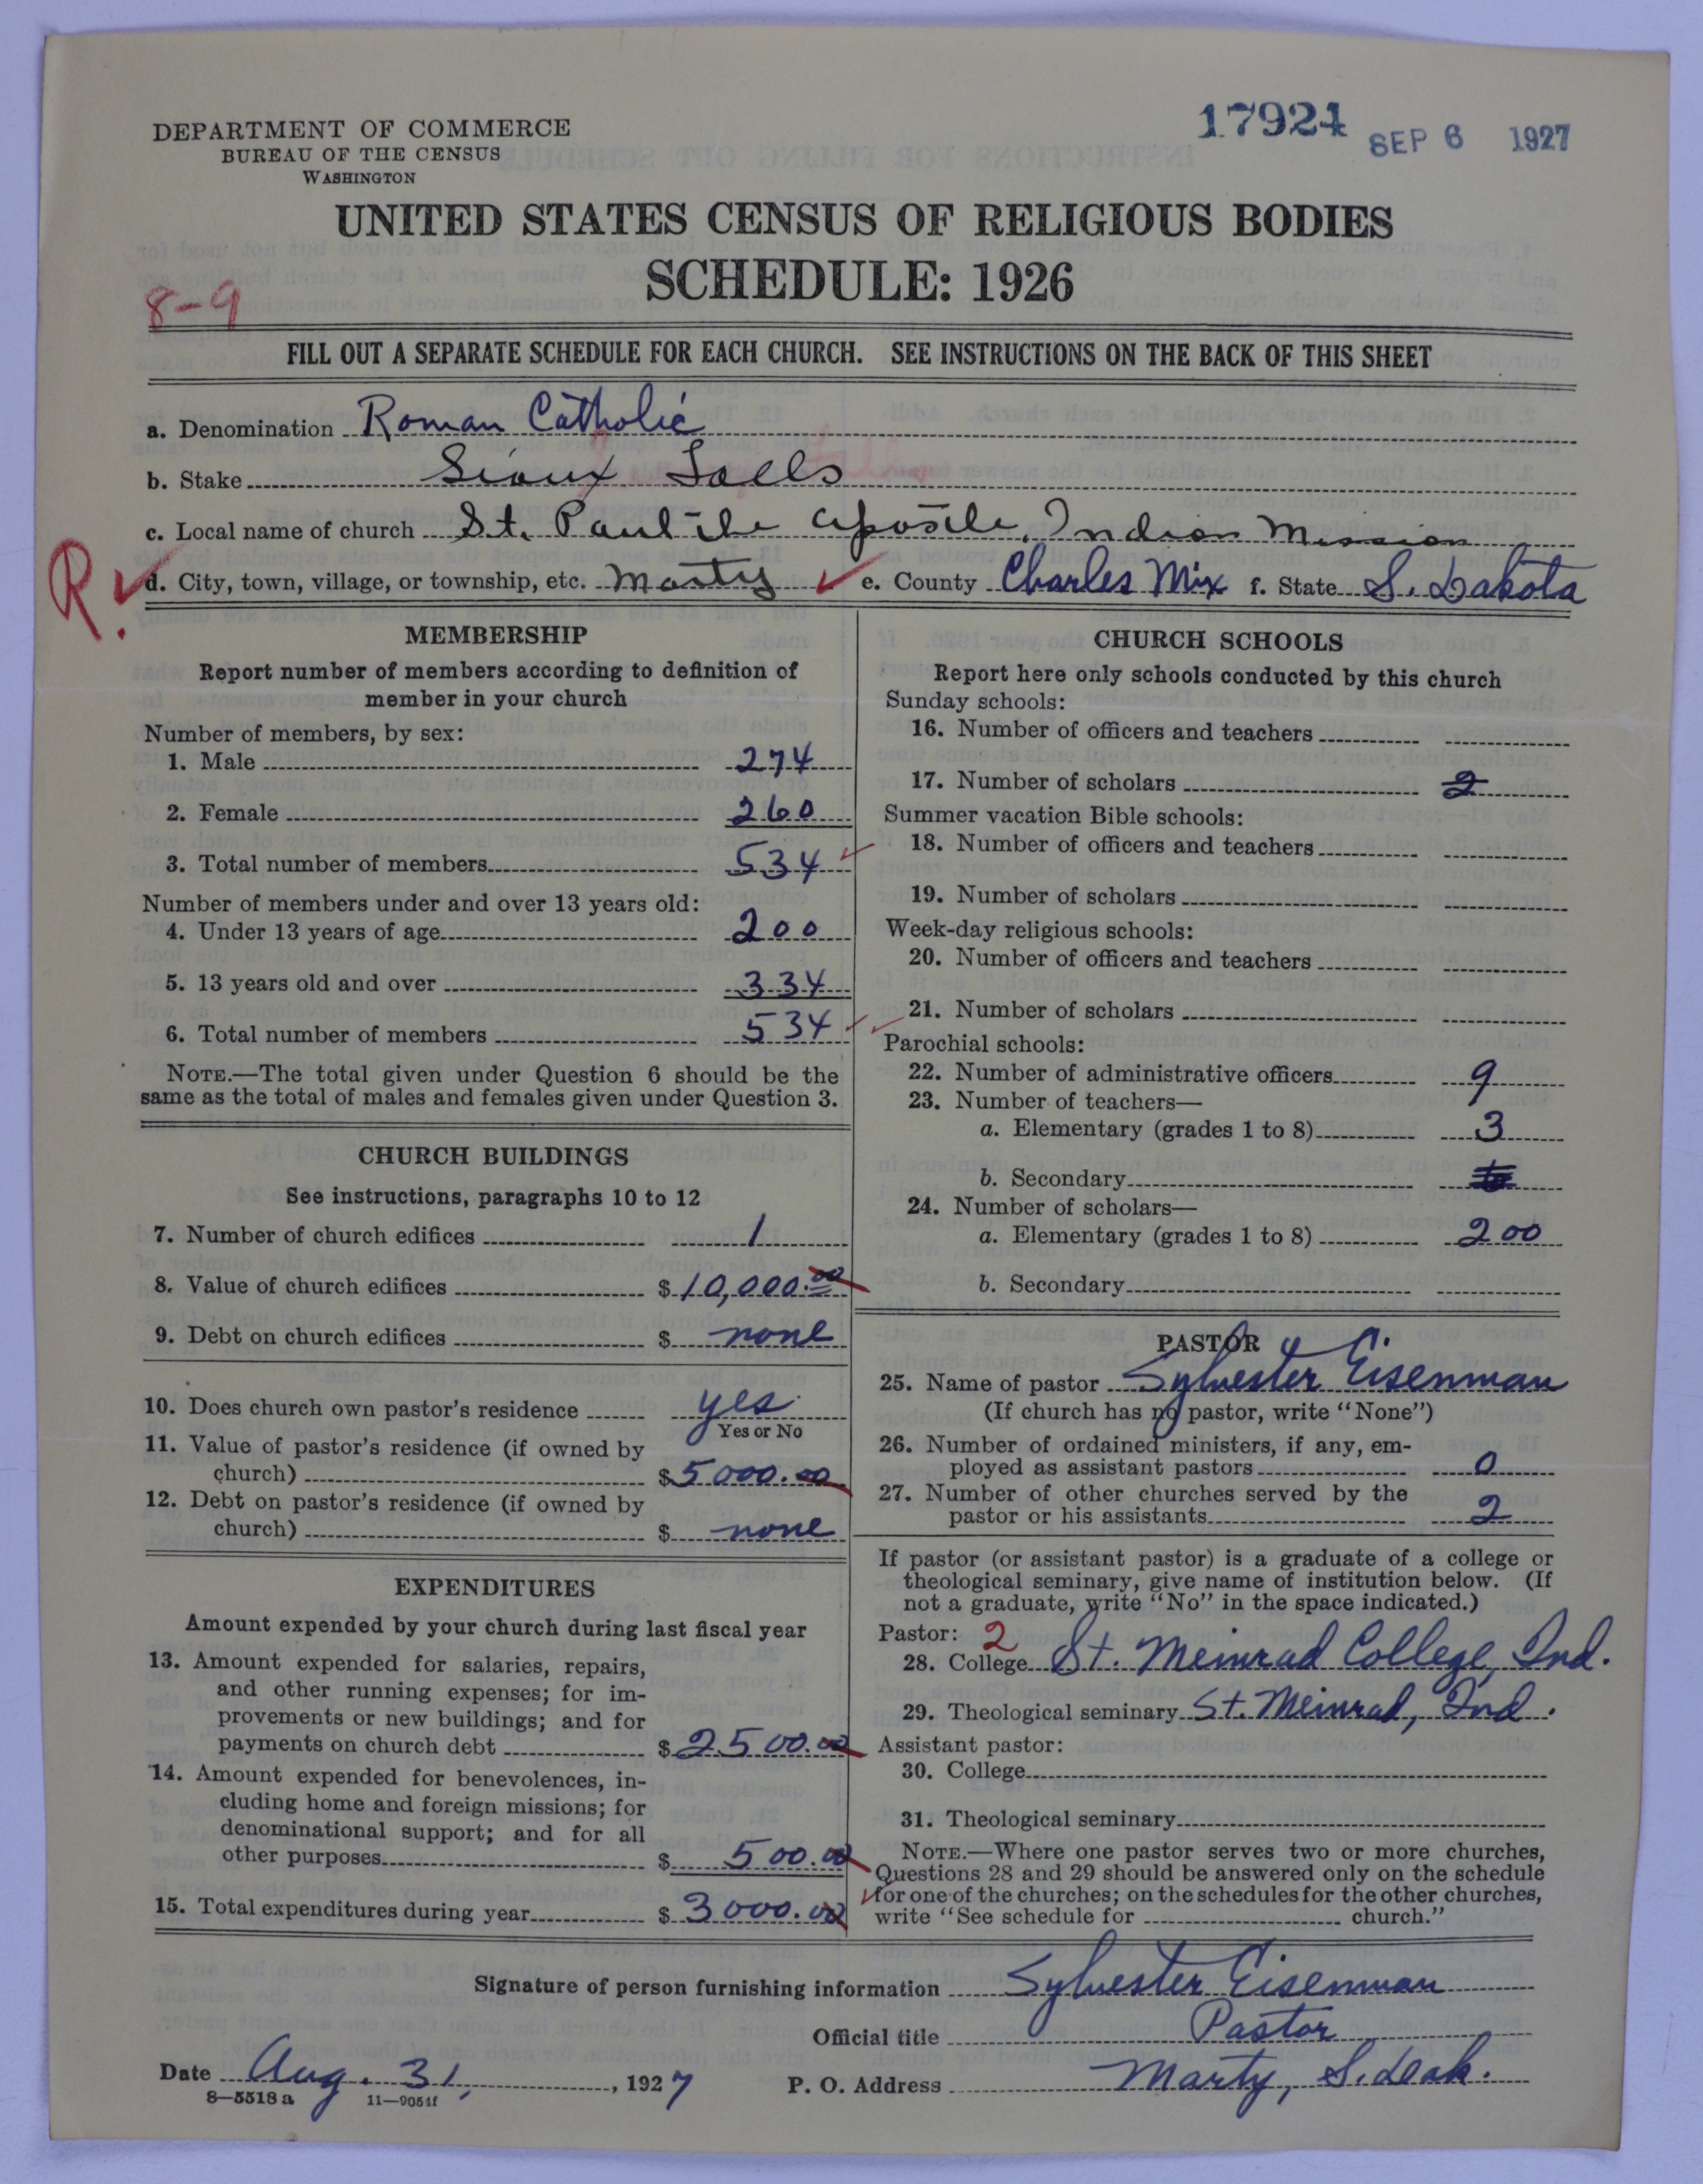 17924 SEP 6 1927
DEPARTMENT OF COMMERCE
BUREAU OF THE CENSUS
WASHINGTON
UNITED STATES CENSUS OF RELIGIOUS BODIES
SCHEDULE: 1926
8-9
FILL OUT A SEPARATE SCHEDULE FOR EACH CHURCH. SEE INSTRUCTIONS ON THE BACK OF THIS SHEET
a. Denomination Roman Catholic
b. Stake Sioux Falls
c. Local name of church St. Paul the Apostle, Indian Mission
R. d. City, town, village, or township, etc. Marty e. County Charles Mix f. State S. Dakota
MEMBERSHIP
Report number of members according to definition of
member in your church
Number of members, by sex:
1. Male 274
2. Female 260
3. Total number of members 534
Number of members under and over 13 years old:
4. Under 13 years of age 200
5. 13 years old and over 334
6. Total number of members 534
NOTE.—The total given under Question 6 should be the
same as the total of males and females given under Question 3.
CHURCH BUILDINGS
See instructions, paragraphs 10 to 12
7. Number of church edifices 1
8. Value of church edifices $10,000.00
9. Debt on church edifices $ none
10. Does church own pastor's residence yes
Yes or No
11. Value of pastor's residence (if owned by
church) $5000.00
12. Debt on pastor's residence (if owned by
church) $ none
EXPENDITURES
Amount expended by your church during last fiscal year
13. Amount expended for salaries, repairs,
and other running expenses; for im-
provements or new buildings; and for
payments on church debt $2500.00
14. Amount expended for benevolences, in-
cluding home and foreign missions; for
denominational support; and for all
other purposes $ 500.00
15. Total expenditures during year $ 3000.00
CHURCH SCHOOLS
Report here only schools conducted by this church
Sunday schools:
16. Number of officers and teachers
17. Number of scholars 2
Summer vacation Bible schools:
18. Number of officers and teachers
19. Number of scholars
Week-day religious schools:
20. Number of officers and teachers
21. Number of scholars
Parochial schools:
22. Number of administrative officers 9
23. Number of teachers—
a. Elementary (grades 1 to 8) 3
b. Secondary
24. Number of scholars—
a. Elementary (grades 1 to 8) 200
b. Secondary
PASTOR
25. Name of pastor Sylvester Eisenman
(If church has no pastor, write "None")
26. Number of ordained ministers, if any, em-
ployed as assistant pastors 0
27. Number of other churches served by the
pastor or his assistants 2
If pastor (or assistant pastor) is a graduate of a college or
theological seminary, give name of institution below. (If
not a graduate, write "No" in the space indicated.)
Pastor: 2
28. College St. Meinrad College, Ind.
29. Theological seminary St. Meinrad, Ind.
Assistant pastor:
30. College
31. Theological seminary
NOTE.—Where one pastor serves two or more churches,
Questions 28 and 29 should be answered only on the schedule
for one of the churches; on the schedules for the other churches,
write "See schedule for church."
Signature of person furnishing information Sylvester Eisenman
Official title Pastor
Date Aug. 31, 1927 P. O. Address Marty, S. Dak.
8—5518 a 11—9051f